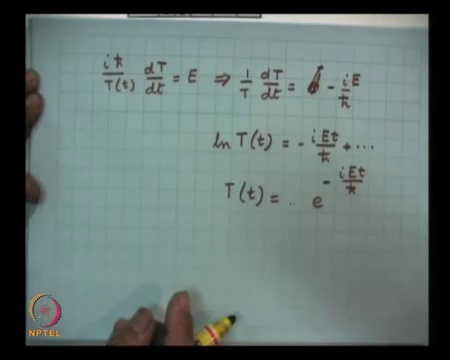 iħ/T(t) dT/dt = E ⇒ 1/T dT/dt = - iE/ħ
ln T(t) = - iEt/ħ + ...
T(t) = .. e^{- iEt/ħ}
NPTEL